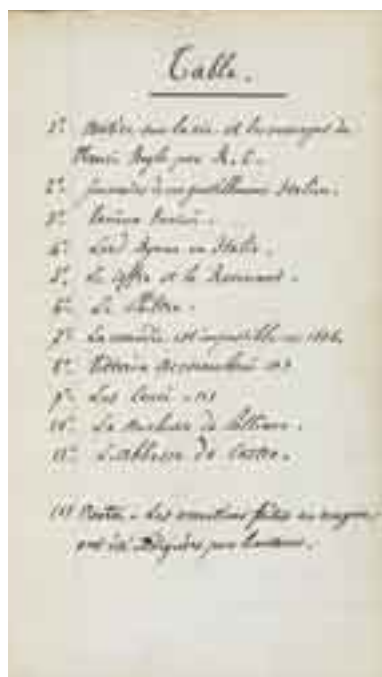 Table.
1° Notice sur la vie et les ouvrages de
Henri Beyle par R. C.
2° Souvenirs d'un gentilhomme Italien.
3° Vanina Vanini.
4° Lord Byron en Italie.
5° Le Coffre et le Revenant.
6° Le Philtre.
7° La comédie est impossible en 1836.
8° Vittoria Accoramboni (1)
9° Les Cenci - (1)
10° La duchesse de Palliano.
11° L'abbesse de Castro.
(1) Nota - Les corrections faites en marge
ont été par l'auteur.